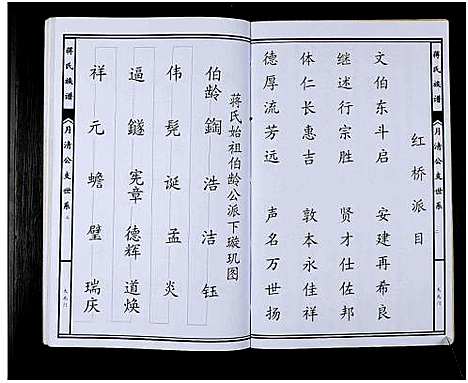 蒋氏族谱
月清公支世系
红桥派目
文伯东斗启 安建再希良
继述行宗胜 贤才仕佐邦
体仁长惠吉 敦本永佳祥
德厚流芳远 声名万世扬
蒋氏始祖伯龄公派下璇玑图
伯龄 鋾 浩 洁 钰
伟 髡 诞 孟 炎
逼 鐩 宪章 德辉 道焕
祥 元 蟾 璧 瑞庆
蒋氏族谱
月清公支世系